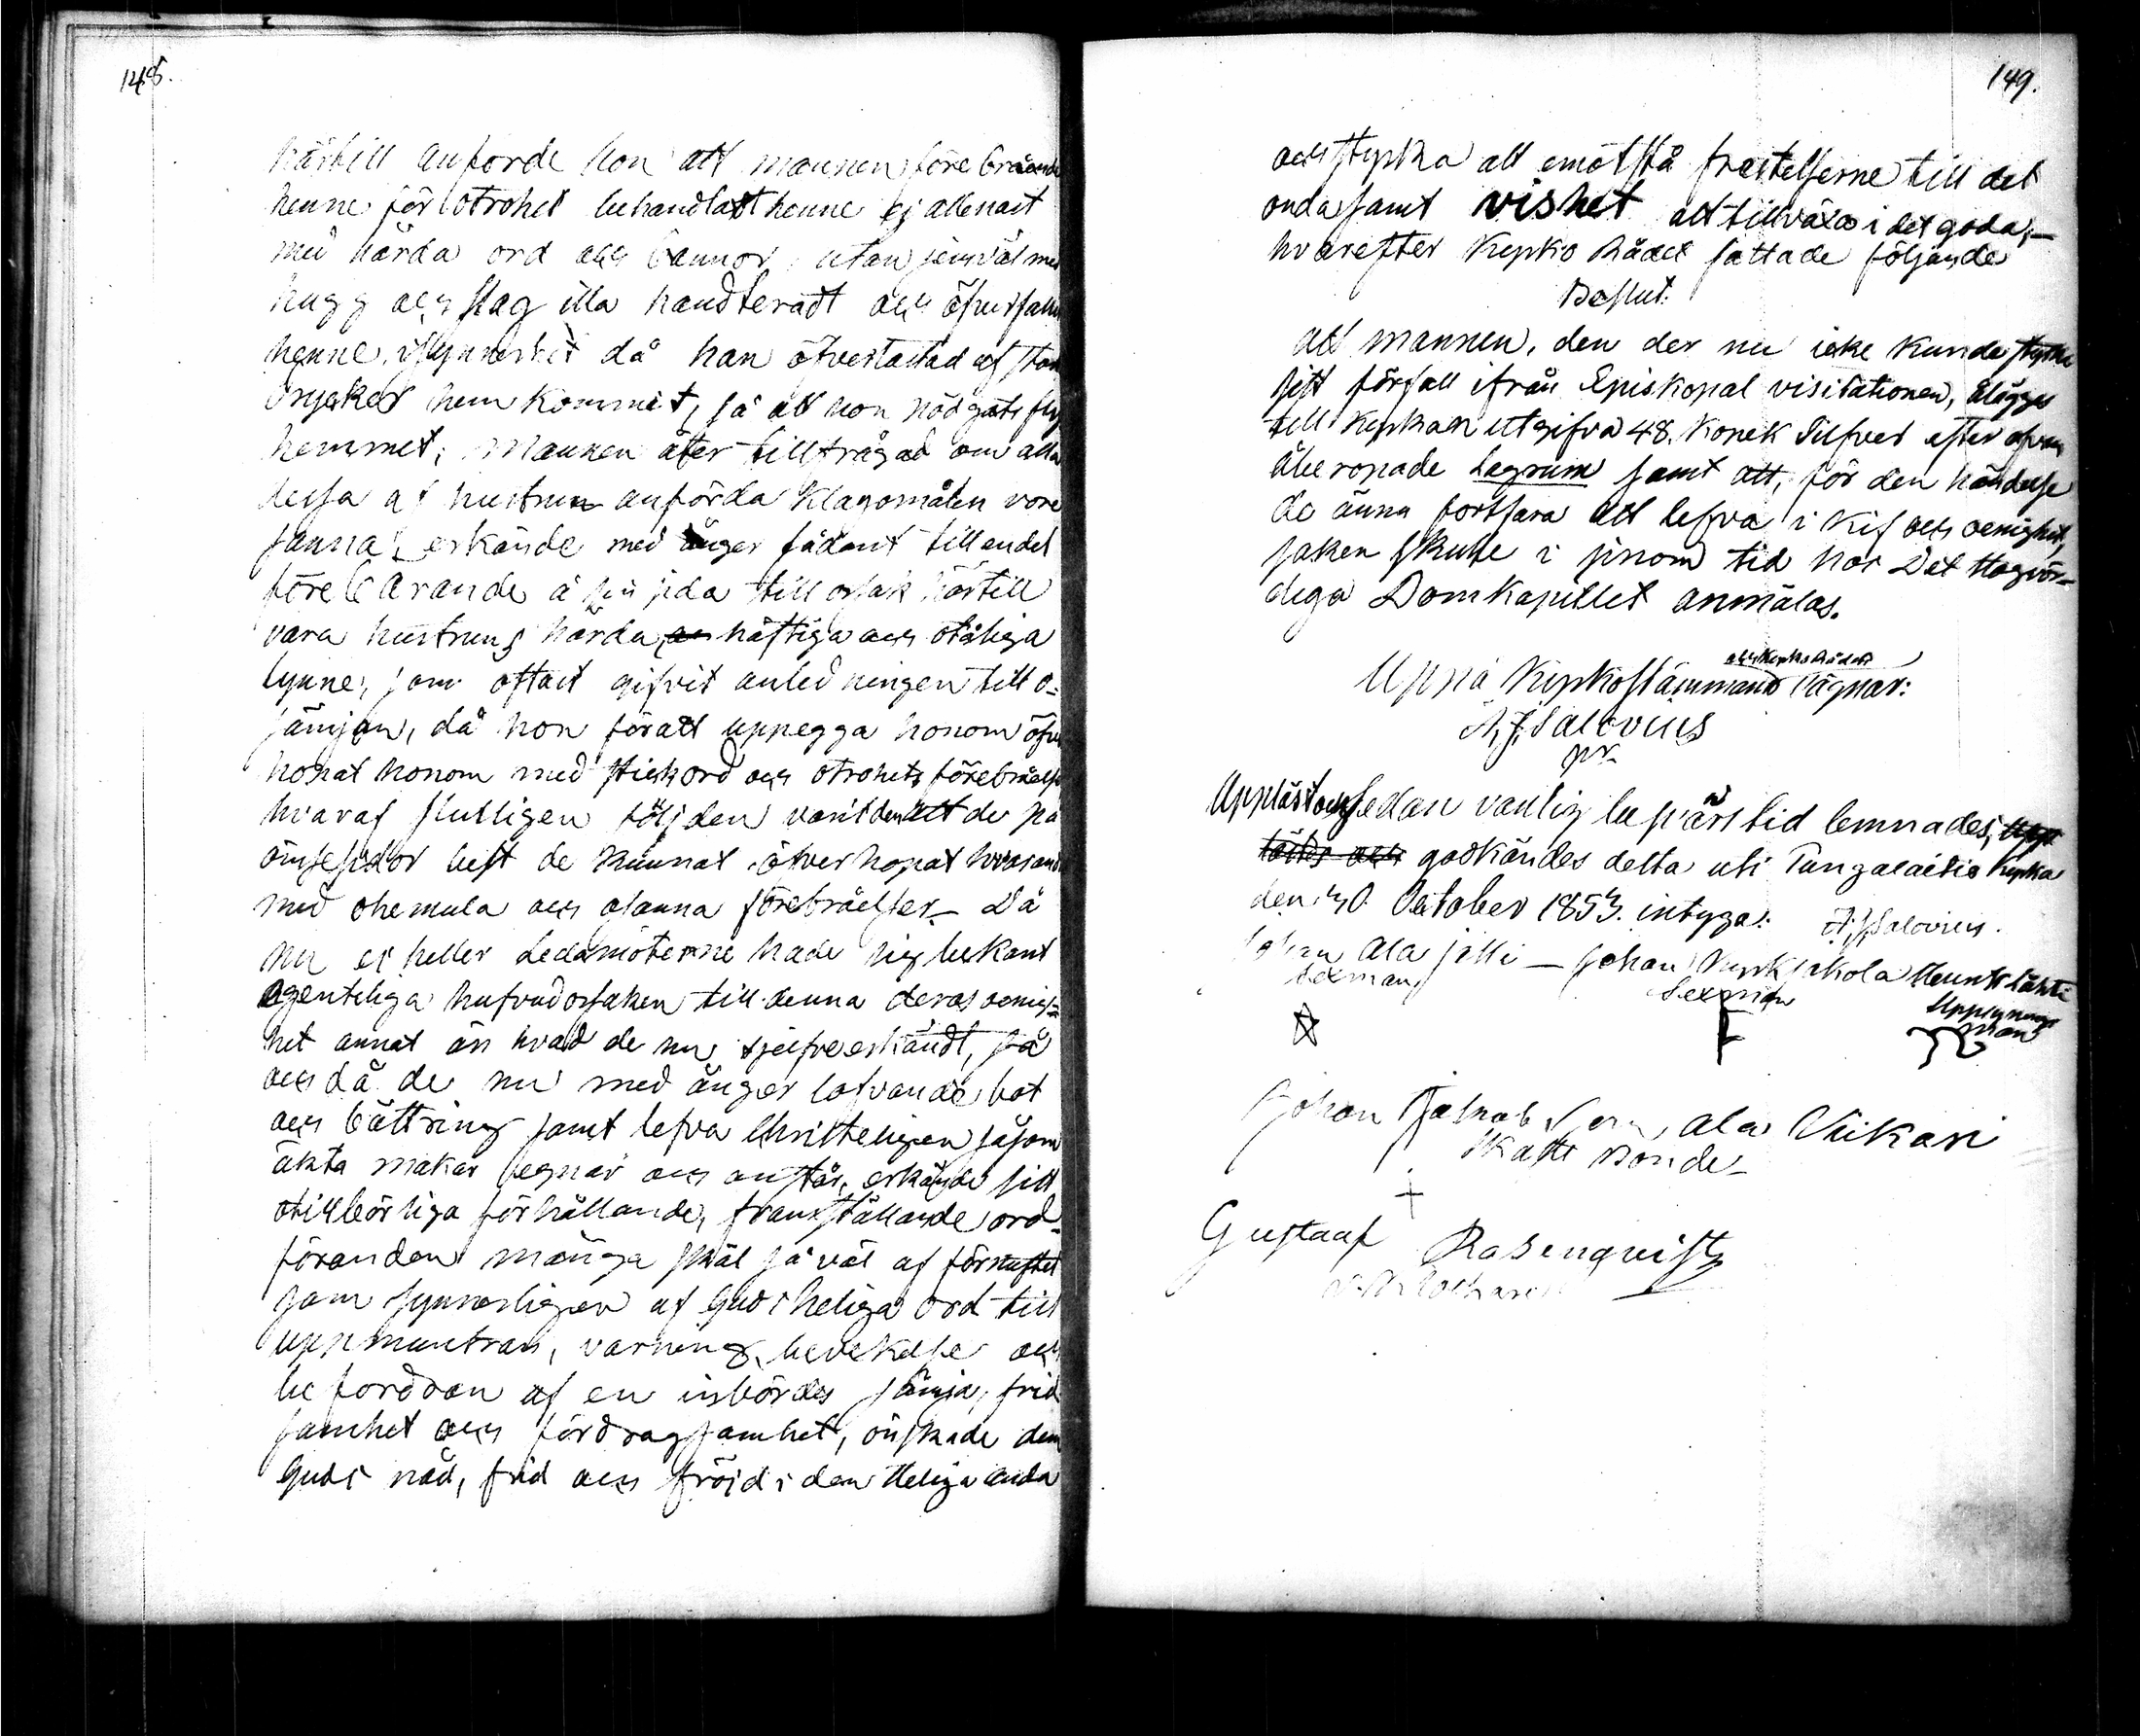 148.
härtill anforde hon att mannen förebrående
henne för otrohet behandlat henne ej allenast
med hårda ord och bannor, utan jemväl med
hugg och slag illa handteradt och öfverfallit
henne, i synnerhet då han öfverlastad af starka
drycker hem kommit, så att hon nödgats fly
hemmet; Mannen åter tillfrågad om alla
dessa af hustrun anförda klagomålen vore
sanna, erkände med ånger sådant till en del
förebärande å sin sida till orsak härtill
vara hustruns hårda, häftiga och otåliga
lynne, som oftast gifvit anledningen till o-
sämjan, då hon för att uppegga honom öfver
hopat honom med stickord och otrohets förebråelse
hvaraf slutligen följden varit den att de på
ömse sidor best de kunnat öfverhopat hvarandra
med ohemula och osanna förebråelser. Då
nu ej heller Ledamöterne hade sig bekant
egenteliga hufvudorsaken till denna deras oenig-
het annat än hvad de nu sjelfve erkändt, så
och då de nu med ånger lofvande bot
och bättring samt lefva Christeligen såsom
äkta makar egnar och anstår, erkände sitt
otillbörliga förhållande, framställande ord-
föranden många skäl så väl af förnuftet
som synnerligen af Guds heliga ord till
uppmuntran, varning, bevekelse och
befordran af en inbördes sämja, frid
samhet och fördragsamhet, önskade dem
Guds nåd, frid och fröjd i den Heliga Anda
149.
och styrka att emotstå frestelserne till det
onda samt vishet att tillväxa i det goda,-
hvarefter Kyrko Rådet fattade följande
Beslut:
att mannen, den der nu icke kunde styrka
sitt förfall ifrån Episkopal visitationen, ålägges
till Kyrkan utgifva 48. Kopek Silfver efter ofvan
åberopade lagrum samt att, för den händelse
de ännu fortfara att lefva i kif och oenighet,
saken skulle i sinom tid hos Det Högvör-
diga Domkapitlet anmälas.
och Kyrko Rådets
Uppå Kyrkostämmans vägnar:
A. J. Salovius
pr.
Uppläst och sedan vanlig besvärs tid lemnades, upp
lästes och godkändes detta uti Tungalaitio Kyrka
den 30 October 1853. intyga: A. J. Salovius.
Johan Ala jilli — Johan Kyrkjakola Heuntslähti
Sexman Sexman Uppsynings
man
Johan Jakob Ala Viikari
Skatte Bonde
Gustaaf Rosenqvist